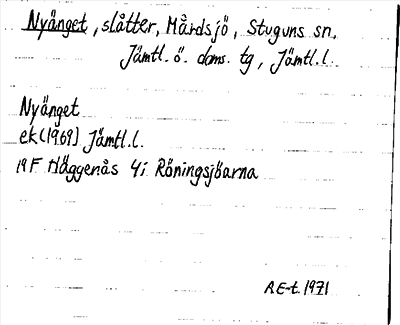 Nyänget, slåtter, Mårdsjö, Stuguns sn,
Jämtl. ö. doms. tg, Jämtl. l.
Nyänget
ek (1969) Jämtl. l.
19F Häggenås 4i Röningsjöarna
A.E-t. 1971